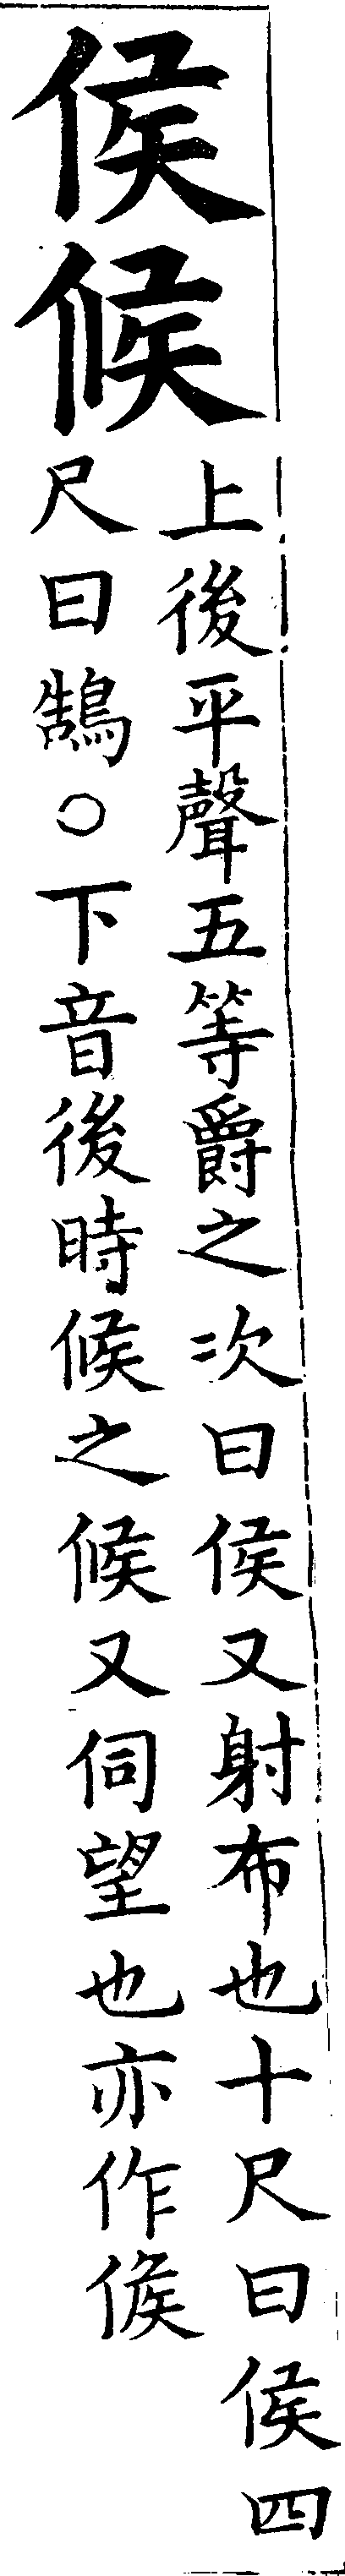 侯候
上後平聲五等爵之次曰侯又射布也十尺曰侯四
尺曰鵠○下音後時候之候又伺望也亦作𠋫